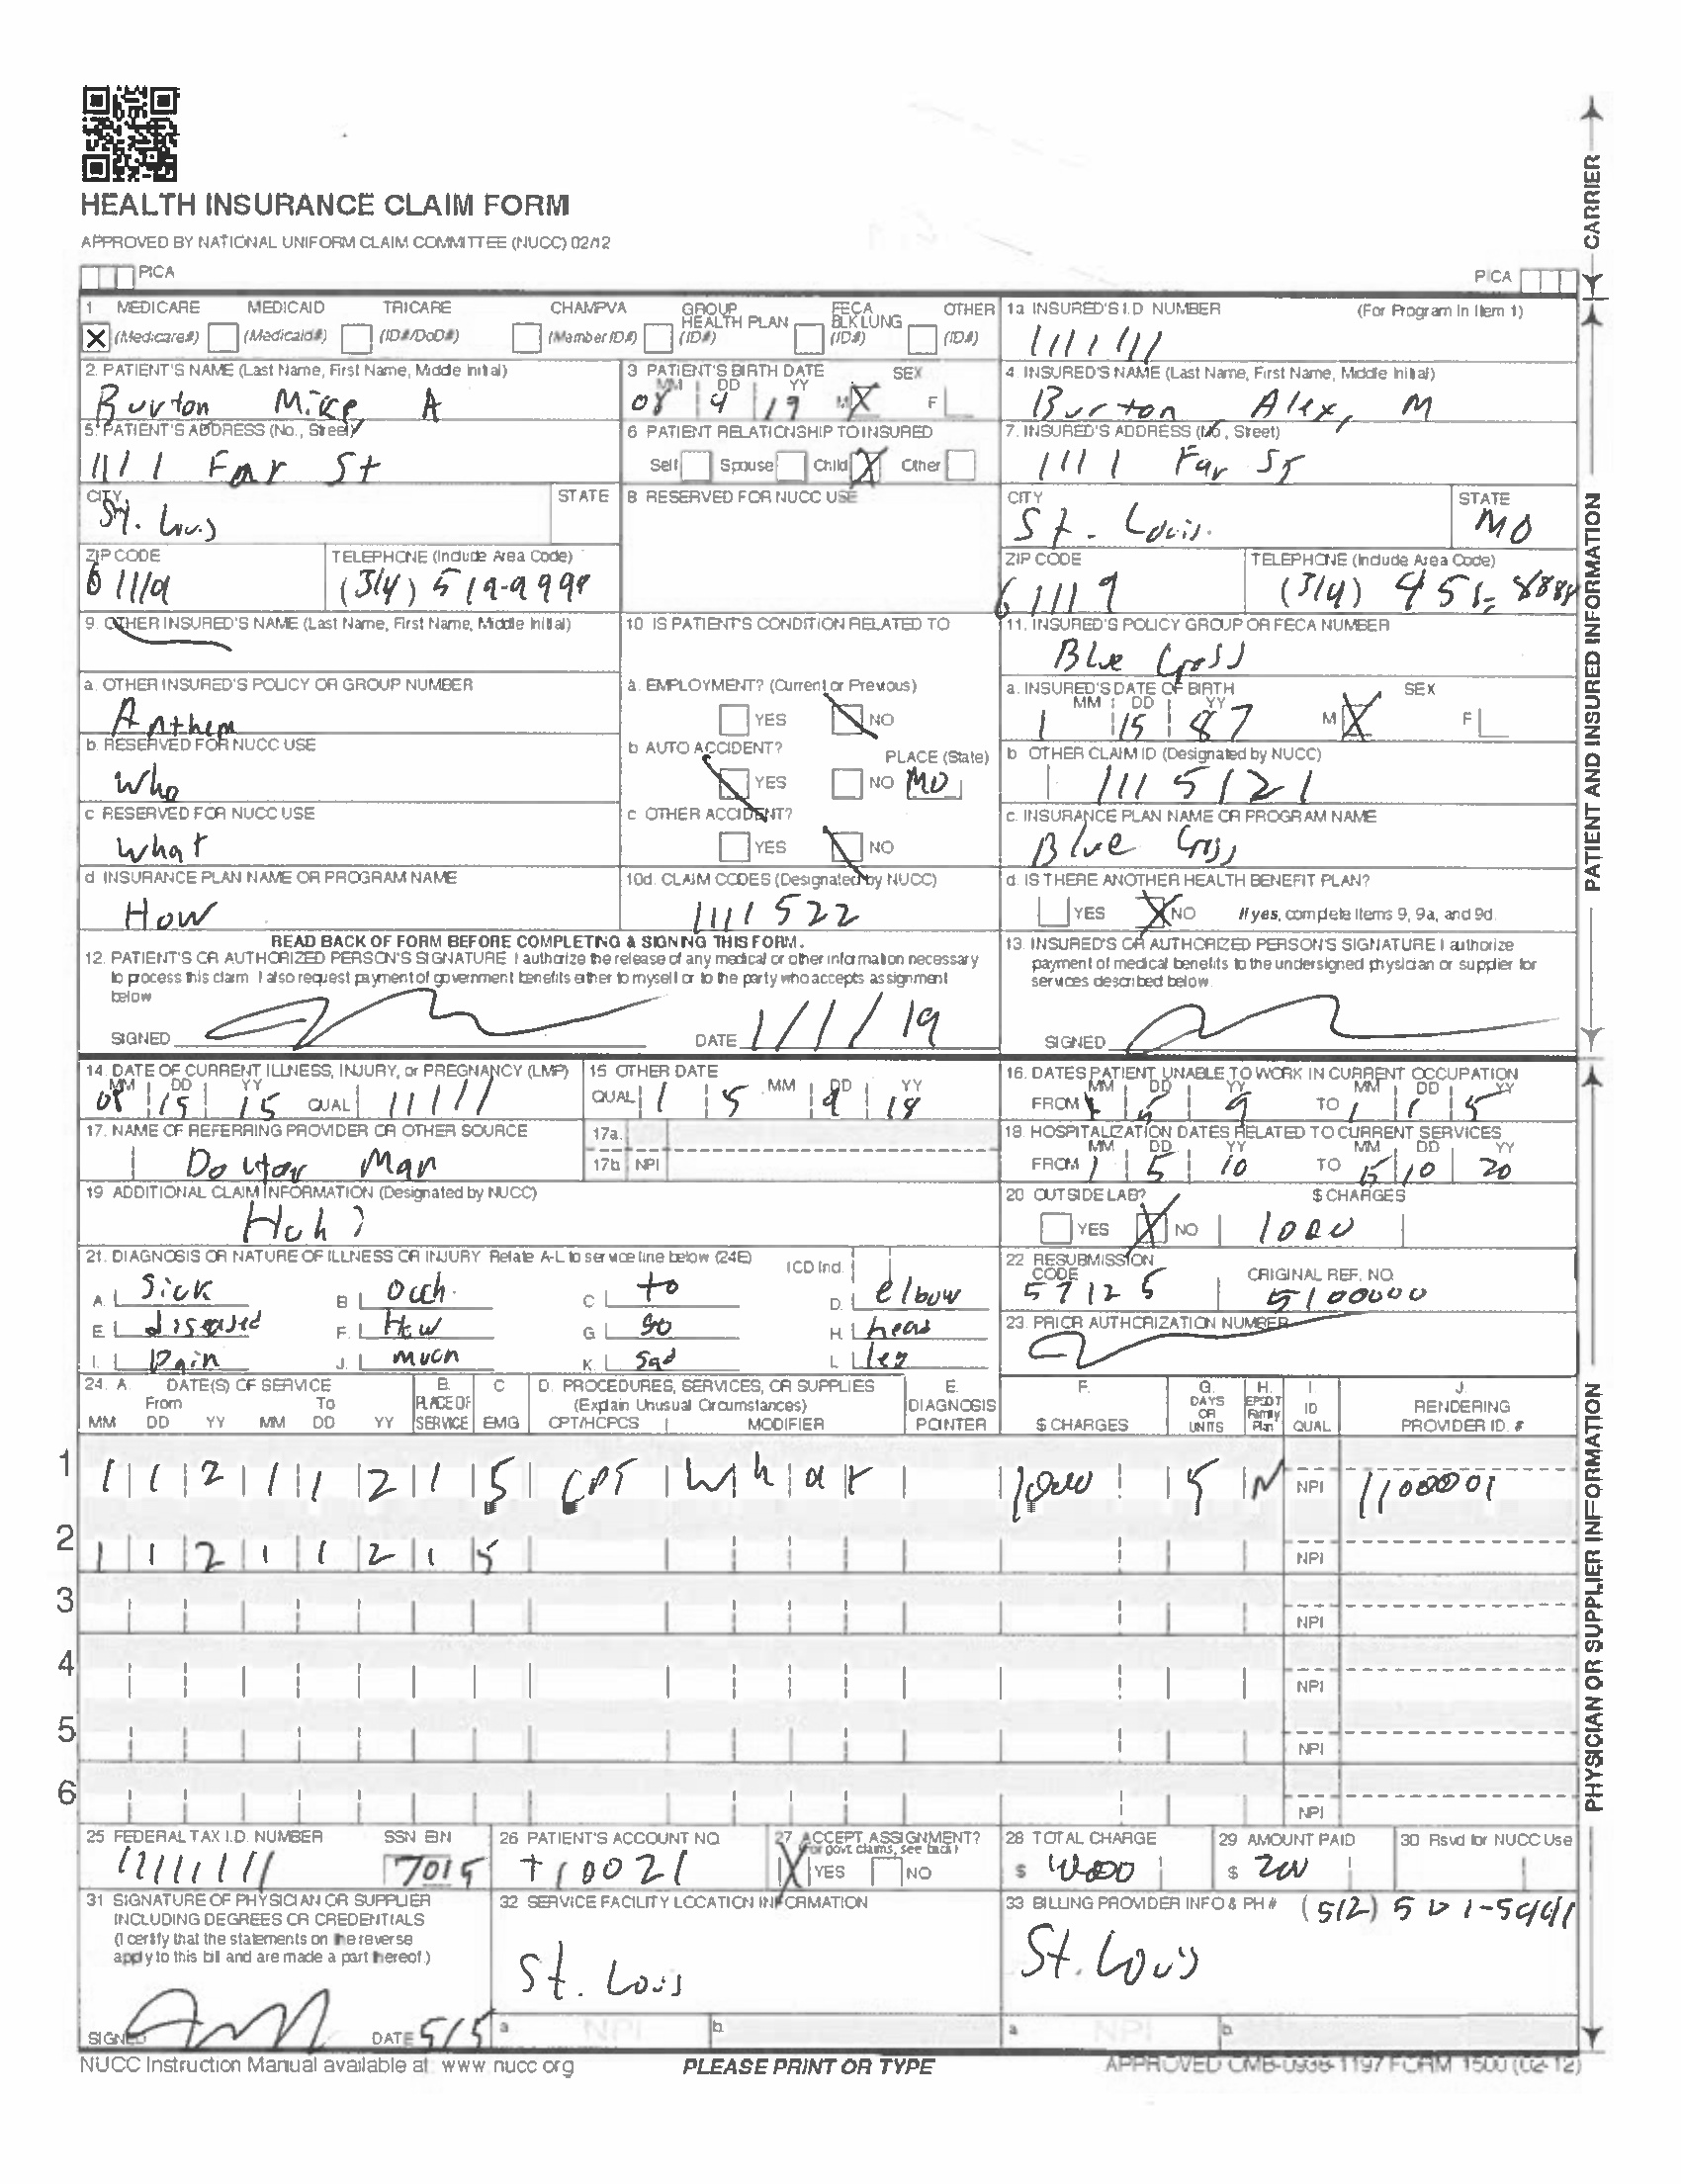 HEALTH INSURANCE CLAIM FORM
APPROVED BY NATIONAL UNIFORM CLAIM COMMITTEE (NUCC) 02/12
PICA
PICA
CARRIER
1 MEDICARE MEDICAID TRICARE CHAMPVA GROUP HEALTH PLAN FECA BLK LUNG OTHER
X (Medicare#) (Medicaid#) (ID#/DoD#) (Member ID#) (ID#) (ID#) (ID#)
1a INSURED'S I.D NUMBER (For Program In Item 1)
1111111
2. PATIENT'S NAME (Last Name, First Name, Middle Initial)
Burton Mike A
3 PATIENT'S BIRTH DATE SEX
MM DD YY
08 9 19 M X F
4. INSURED'S NAME (Last Name, First Name, Middle Initial)
Burton, Alex, M
5. PATIENT'S ADDRESS (No., Street)
1111 Far St
6 PATIENT RELATIONSHIP TO INSURED
Self Spouse Child X Other
7. INSURED'S ADDRESS (No., Street)
1111 Far ST
CITY STATE
St. Louis
8 RESERVED FOR NUCC USE
CITY STATE
St. Louis. MO
ZIP CODE TELEPHONE (Include Area Code)
61119 (314) 519-9999
ZIP CODE TELEPHONE (Include Area Code)
61119 (314) 455-8888
9. OTHER INSURED'S NAME (Last Name, First Name, Middle Initial)
10 IS PATIENT'S CONDITION RELATED TO
11. INSURED'S POLICY GROUP OR FECA NUMBER
Blue Cross
a. OTHER INSURED'S POLICY OR GROUP NUMBER
Anthem
a. EMPLOYMENT? (Current or Previous)
YES NO
a. INSURED'S DATE OF BIRTH SEX
MM DD YY
1 15 87 M X F
b. RESERVED FOR NUCC USE
Who
b AUTO ACCIDENT? PLACE (State)
YES NO MO
b OTHER CLAIM ID (Designated by NUCC)
1115121
c RESERVED FOR NUCC USE
What
c OTHER ACCIDENT?
YES NO
c. INSURANCE PLAN NAME OR PROGRAM NAME
Blue Cross
d INSURANCE PLAN NAME OR PROGRAM NAME
How
10d. CLAIM CODES (Designated by NUCC)
1111522
d. IS THERE ANOTHER HEALTH BENEFIT PLAN?
YES X NO If yes, complete Items 9, 9a, and 9d.
READ BACK OF FORM BEFORE COMPLETING & SIGNING THIS FORM.
12. PATIENT'S OR AUTHORIZED PERSON'S SIGNATURE I authorize the release of any medical or other information necessary
to process this claim I also request payment of government benefits either to myself or to the party who accepts assignment
below
SIGNED DATE 1/1/19
13. INSURED'S OR AUTHORIZED PERSON'S SIGNATURE I authorize
payment of medical benefits to the undersigned physician or supplier for
services described below.
SIGNED
PATIENT AND INSURED INFORMATION
14. DATE OF CURRENT ILLNESS, INJURY, or PREGNANCY (LMP)
MM DD YY
08 15 15 QUAL 11111
15 OTHER DATE
MM DD YY
QUAL 1 5 9 18
16. DATES PATIENT UNABLE TO WORK IN CURRENT OCCUPATION
MM DD YY MM DD YY
FROM 9 TO 1 1 5
17. NAME OF REFERRING PROVIDER OR OTHER SOURCE
Doctor Man
17a.
17b NPI
18 HOSPITALIZATION DATES RELATED TO CURRENT SERVICES
MM DD YY MM DD YY
FROM 1 5 10 TO 15 10 20
19 ADDITIONAL CLAIM INFORMATION (Designated by NUCC)
Huh?
20 OUTSIDE LAB? $ CHARGES
YES X NO 1000
21. DIAGNOSIS OR NATURE OF ILLNESS OR INJURY Relate A-L to service line below (24E) ICD Ind.
A. Sick B Ouch. C to D. elbow
E diseased F. How G so H. head
I. Pain J. much K. sad L. leg
22 RESUBMISSION CODE ORIGINAL REF. NO.
57125 5100000
23. PRIOR AUTHORIZATION NUMBER
24. A. DATE(S) OF SERVICE B. C D. PROCEDURES, SERVICES, OR SUPPLIES E. F. G. H. I. J.
From To PLACE OF (Explain Unusual Circumstances) DIAGNOSIS DAYS OR UNITS EPSDT Family Plan ID QUAL RENDERING
MM DD YY MM DD YY SERVICE EMG CPT/HCPCS MODIFIER POINTER $ CHARGES PROVIDER ID. #
1 1 1 2 1 1 2 1 5 CPT W h a t 1000 5 N NPI 1100001
2 1 1 2 1 1 2 1 5 NPI
3 NPI
4 NPI
5 NPI
6 NPI
25 FEDERAL TAX I.D. NUMBER SSN EIN
7015
26 PATIENT'S ACCOUNT NO.
+10021
27 ACCEPT ASSIGNMENT?
(For govt. claims, see back)
X YES NO
28 TOTAL CHARGE
$
29 AMOUNT PAID
$ 200
30 Rsvd for NUCC Use
31 SIGNATURE OF PHYSICIAN OR SUPPLIER
INCLUDING DEGREES OR CREDENTIALS
(I certify that the statements on the reverse
apply to this bill and are made a part thereof.)
SIGNED DATE 5/5
32 SERVICE FACILITY LOCATION INFORMATION
St. Louis
a NPI b.
33 BILLING PROVIDER INFO & PH # (512) 501-5441
St. Louis
a NPI b.
PHYSICIAN OR SUPPLIER INFORMATION
NUCC Instruction Manual available at: www nucc org
PLEASE PRINT OR TYPE
APPROVED OMB-0938-1197 FORM 1500 (02-12)